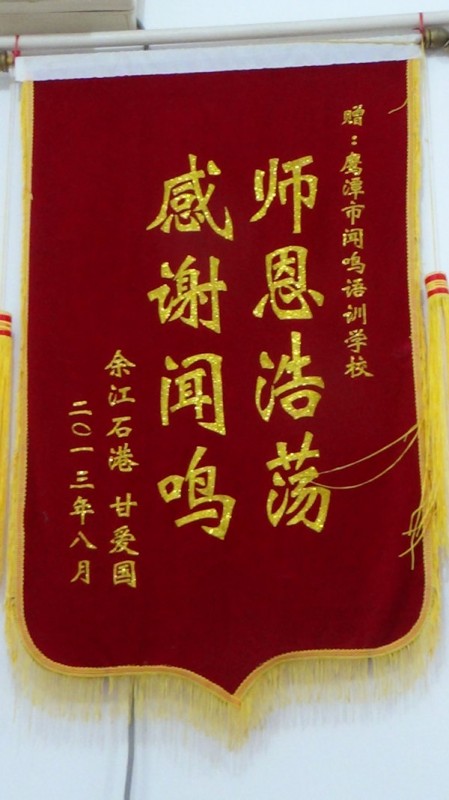 赠：鹰潭市闻鸣语训学校
师恩浩荡
感谢闻鸣
余江石港 甘爱国
二〇一三年八月